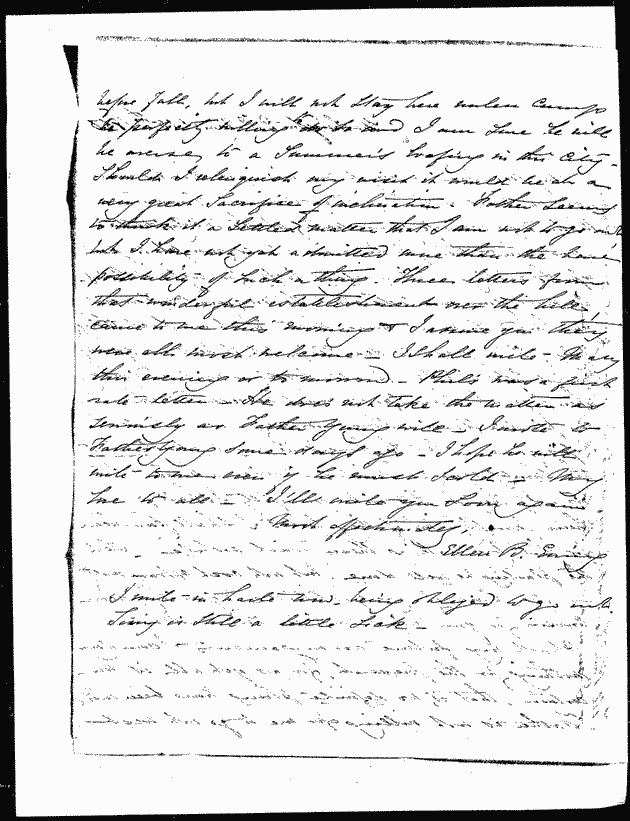 before Fall, but I will not stay here unless Cump
is perfectly willing and I am sure he will
be averse to a Summer's loafing in this City -
Should I relinquish my visit it would be at a
very great Sacrifice of inclination. Father seems
to think it a settled matter that I am not to go
but I have not yet admitted more than the bare
possibility of such a thing. Three letters from
that wonderful establishment over the hill,
came to me this morning & I assure you they
were all most welcome - I shall write Mary
this evening or to morrow - Phil's was a first
rate letter - He does not take the matter as
seriously as Father Young will - I wrote to
Father Young some days ago - I hope he will
write to me even if he must scold - My
love to all - I'll write you soon again
Most affectionately,
Ellen B. Ewing
I write in haste now, being obliged to go out.
is still a little sick -